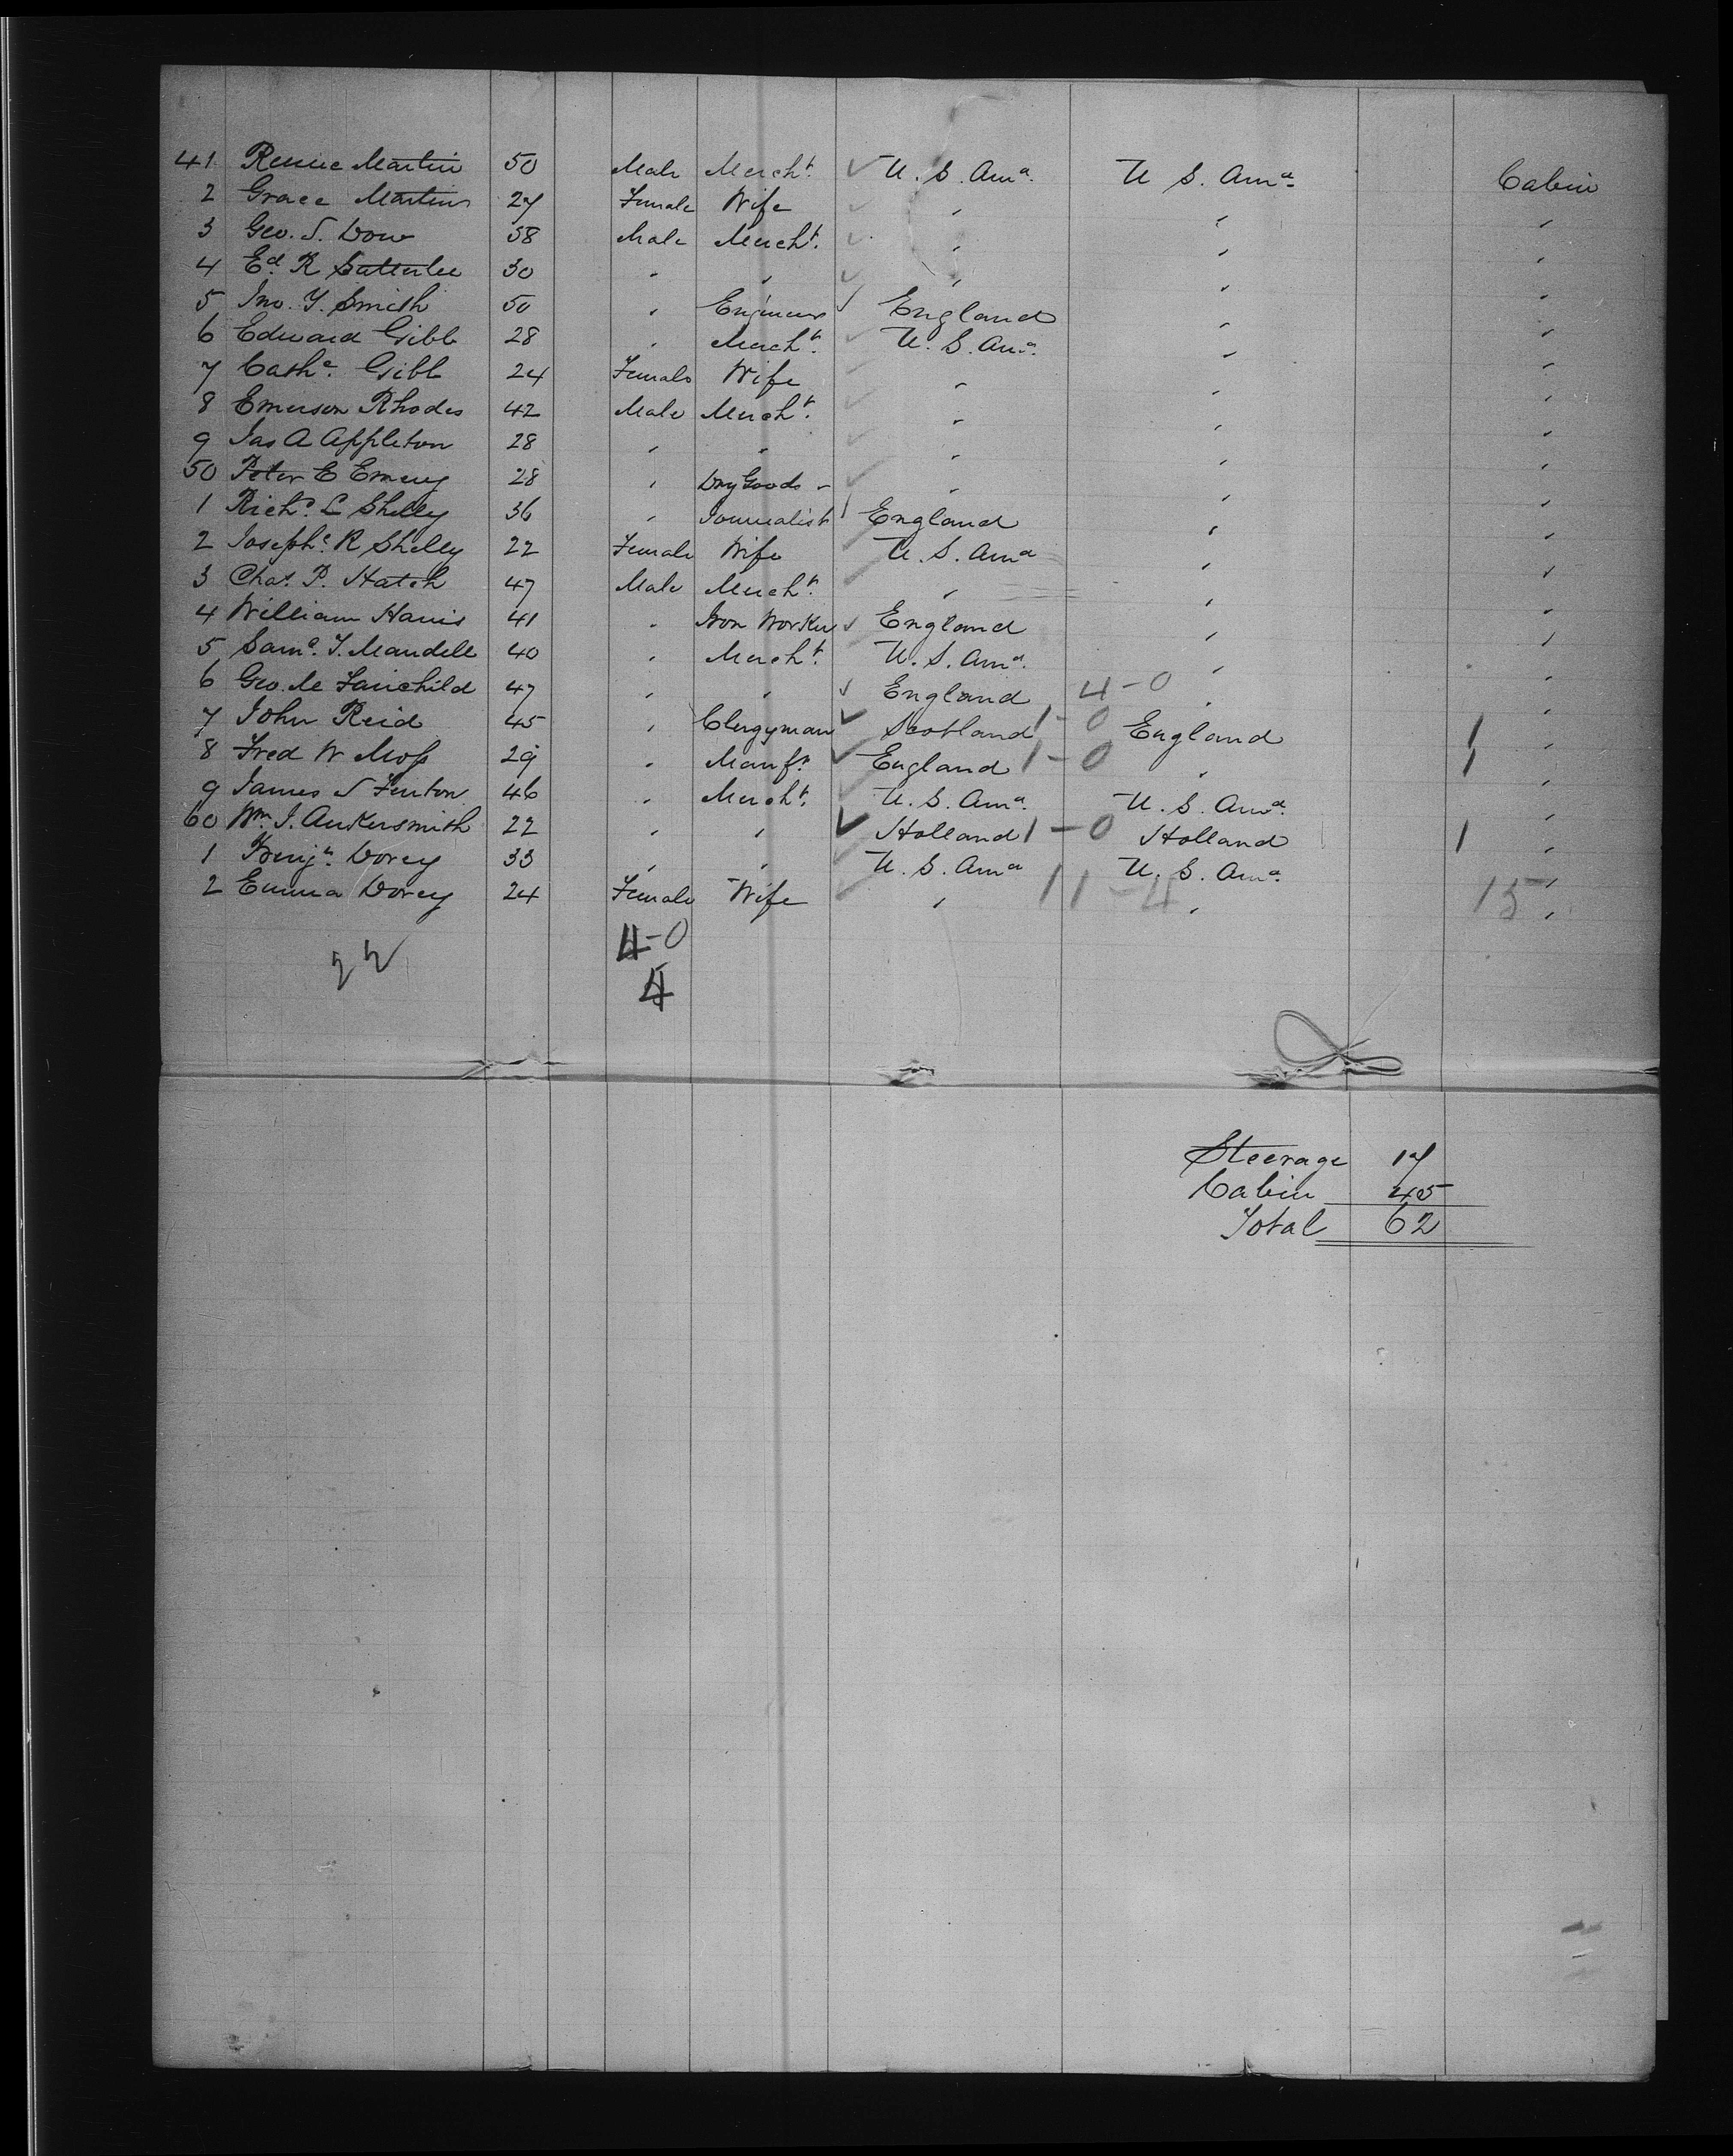 41 Rennie Martin 50 Male Mercht. ✓ U. S. Ama. U S. Ama. Cabin
2 Grace Martin 27 Female Wife ✓ " " "
3 Geo. S. Dow 38 Male Mercht. ✓ " " "
4 Ed. R Satterlee 30 " " ✓ " " "
5 Jno. Y. Smith 50 " Engineer ✓ England " "
6 Edward Gibb 28 " Mercht. ✓ U. S. Ama. " "
7 Cathe. Gibb 24 Female Wife ✓ " " "
8 Emerson Rhodes 42 Male Mercht. ✓ " " "
9 Jas A Appleton 28 " " ✓ " " "
50 Peter E Emery 28 " Dry Goods " ✓ " " "
1 Richd. L Shelly 36 " Journalist England " "
2 Josephe. R Shelly 22 Female Wife ✓ U. S. Ama " "
3 Chas. P. Hatch 47 Male Mercht. ✓ " " "
4 William Harris 41 " Iron Worker ✓ England " "
5 Saml. T. Mandell 40 " Mercht. U. S. Ama. " "
6 Geo. M Fairchild 47 " " ✓ England 4-0 " "
7 John Reid 45 " Clergyman ✓ Scotland 1-0 England 1 "
8 Fred W Moss 29 " Manfr. ✓ England 1-0 " 1 "
9 James S Fenton 46 " Mercht. ✓ U. S. Ama. U. S. Ama. "
60 Wm. J. Ankersmith 22 " " ✓ Holland 1-0 Holland 1 "
1 Benjn. Dorey 33 " " ✓ U. S. Ama U. S. Ama. "
2 Emma Dorey 24 Female Wife ✓ " 11-4 " 15 "
22 4-0
4
Steerage 17
Cabin 45
Total 62